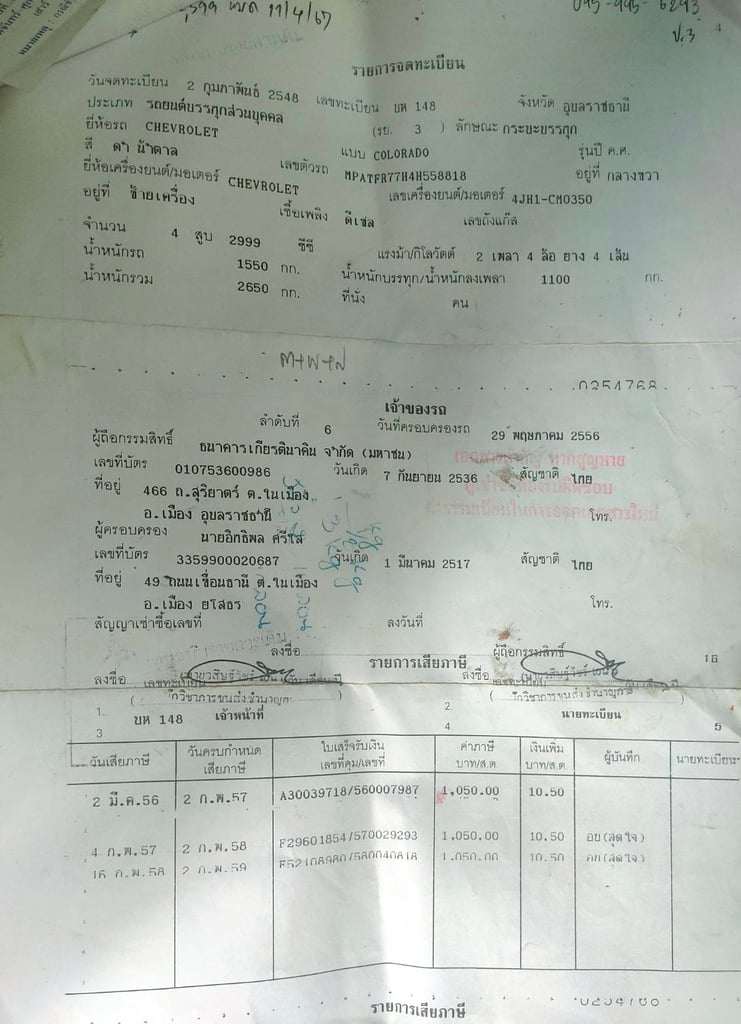 หมด 11/4/67
095-995-6293
ป.3
4
รายการจดทะเบียน
วันจดทะเบียน 2 กุมภาพันธ์ 2548 เลขทะเบียน บห 148 จังหวัด อุบลราชธานี
ประเภท รถยนต์บรรทุกส่วนบุคคล (รย. 3 ) ลักษณะ กระบะบรรทุก
ยี่ห้อรถ CHEVROLET แบบ COLORADO รุ่นปี ค.ศ.
สี ดำ น้ำตาล เลขตัวรถ MPATFR77H4H558818 อยู่ที่ กลางขวา
ยี่ห้อเครื่องยนต์/มอเตอร์ CHEVROLET เลขเครื่องยนต์/มอเตอร์ 4JH1-CM0350
อยู่ที่ ซ้ายเครื่อง เชื้อเพลิง ดีเซล เลขถังแก๊ส
จำนวน 4 สูบ 2999 ซีซี แรงม้า/กิโลวัตต์ 2 เพลา 4 ล้อ ยาง 4 เส้น
น้ำหนักรถ 1550 กก. น้ำหนักบรรทุก/น้ำหนักลงเพลา 1100 กก.
น้ำหนักรวม 2650 กก. ที่นั่ง คน
0254768
เจ้าของรถ
ลำดับที่ 6 วันที่ครอบครองรถ 29 พฤษภาคม 2556
ผู้ถือกรรมสิทธิ์ ธนาคารเกียรตินาคิน จำกัด (มหาชน)
เลขที่บัตร 010753600986 วันเกิด 7 กันยายน 2536 สัญชาติ ไทย
ที่อยู่ 466 ถ.สุริยาตร์ ต.ในเมือง
อ.เมือง อุบลราชธานี โทร.
ผู้ครอบครอง นายอิทธิพล ศรีใส
เลขที่บัตร 3359900020687 วันเกิด 1 มีนาคม 2517 สัญชาติ ไทย
ที่อยู่ 49 ถนนเชื่อนธานี ต.ในเมือง
อ.เมือง ยโสธร โทร.
สัญญาเช่าซื้อเลขที่ ลงวันที่
ลงชื่อ ผู้ถือกรรมสิทธิ์
รายการเสียภาษี 16
ลงชื่อ ลงชื่อ
1. บห 148 เจ้าหน้าที่ 2. นายทะเบียน
3. 4 5
วันเสียภาษี วันครบกำหนดเสียภาษี ใบเสร็จรับเงิน เลขที่คุม/เลขที่ ค่าภาษี บาท/ส.ต. เงินเพิ่ม บาท/ส.ต. ผู้บันทึก นายทะเบียน
2 มี.ค.56 2 ก.พ.57 A30039718/560007987 1,050.00 10.50
4 ก.พ.57 2 ก.พ.58 F29601854/570029293 1,050.00 10.50 อบ(สุดใจ)
16 ก.พ.58 2 ก.พ.59 F52108980/580040818 1,050.00 10.50 อบ(สุดใจ)
รายการเสียภาษี